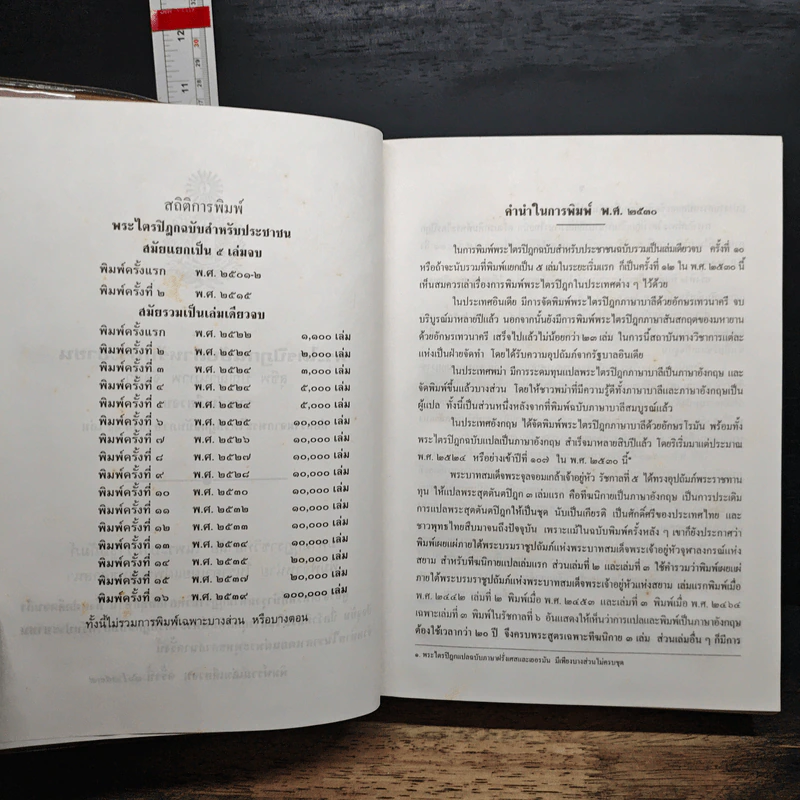 สถิติการพิมพ์
พระไตรปิฎกฉบับสำหรับประชาชน
สมัยแยกเป็น ๕ เล่มจบ
พิมพ์ครั้งแรก พ.ศ. ๒๕๐๑-๒
พิมพ์ครั้งที่ ๒ พ.ศ. ๒๕๑๕
สมัยรวมเป็นเล่มเดียวจบ
พิมพ์ครั้งแรก พ.ศ. ๒๕๒๒ ๑,๑๐๐ เล่ม
พิมพ์ครั้งที่ ๒ พ.ศ. ๒๕๒๔ ๒,๐๐๐ เล่ม
พิมพ์ครั้งที่ ๓ พ.ศ. ๒๕๒๔ ๓,๐๐๐ เล่ม
พิมพ์ครั้งที่ ๔ พ.ศ. ๒๕๒๔ ๕,๐๐๐ เล่ม
พิมพ์ครั้งที่ ๕ พ.ศ. ๒๕๒๔ ๕,๐๐๐ เล่ม
พิมพ์ครั้งที่ ๖ พ.ศ. ๒๕๒๕ ๑๐,๐๐๐ เล่ม
พิมพ์ครั้งที่ ๗ พ.ศ. ๒๕๒๖ ๑๐,๐๐๐ เล่ม
พิมพ์ครั้งที่ ๘ พ.ศ. ๒๕๒๗ ๑๐,๐๐๐ เล่ม
พิมพ์ครั้งที่ ๙ พ.ศ. ๒๕๒๘ ๑๐,๐๐๐ เล่ม
พิมพ์ครั้งที่ ๑๐ พ.ศ. ๒๕๓๐ ๑๐,๐๐๐ เล่ม
พิมพ์ครั้งที่ ๑๑ พ.ศ. ๒๕๓๒ ๑๐,๐๐๐ เล่ม
พิมพ์ครั้งที่ ๑๒ พ.ศ. ๒๕๓๓ ๑๐,๐๐๐ เล่ม
พิมพ์ครั้งที่ ๑๓ พ.ศ. ๒๕๓๔ ๑๐,๐๐๐ เล่ม
พิมพ์ครั้งที่ ๑๔ พ.ศ. ๒๕๓๕ ๒๐,๐๐๐ เล่ม
พิมพ์ครั้งที่ ๑๕ พ.ศ. ๒๕๓๗ ๒๐,๐๐๐ เล่ม
พิมพ์ครั้งที่ ๑๖ พ.ศ. ๒๕๓๙ ๑๐๐,๐๐๐ เล่ม
ทั้งนี้ไม่รวมการพิมพ์เฉพาะบางส่วน หรือบางตอน
คำนำในการพิมพ์ พ.ศ. ๒๕๓๐
ในการพิมพ์พระไตรปิฎกฉบับสำหรับประชาชนฉบับรวมเป็นเล่มเดียวจบ ครั้งที่ ๑๐
หรือถ้าจะนับรวมที่พิมพ์แยกเป็น ๕ เล่มในระยะเริ่มแรก ก็เป็นครั้งที่ ๑๒ ใน พ.ศ. ๒๕๓๐ นี้
เห็นสมควรเล่าเรื่องการพิมพ์พระไตรปิฎกในประเทศต่าง ๆ ไว้ด้วย
ในประเทศอินเดีย มีการจัดพิมพ์พระไตรปิฎกภาษาบาลีด้วยอักษรเทวนาครี จบ
บริบูรณ์มาหลายปีแล้ว นอกจากนั้นยังมีการพิมพ์พระไตรปิฎกภาษาสันสกฤตของมหายาน
ด้วยอักษรเทวนาครี เสร็จไปแล้วไม่น้อยกว่า ๒๓ เล่ม ในการนี้สถาบันทางวิชาการแต่ละ
แห่งเป็นฝ่ายจัดทำ โดยได้รับความอุปถัมภ์จากรัฐบาลอินเดีย
ในประเทศพม่า มีการระดมทุนแปลพระไตรปิฎกภาษาบาลีเป็นภาษาอังกฤษ และ
จัดพิมพ์ขึ้นแล้วบางส่วน โดยให้ชาวพม่าที่มีความรู้ดีทั้งภาษาบาลีและภาษาอังกฤษเป็น
ผู้แปล ทั้งนี้เป็นส่วนหนึ่งหลังจากที่พิมพ์ฉบับภาษาบาลีสมบูรณ์แล้ว
ในประเทศอังกฤษ ได้จัดพิมพ์พระไตรปิฎกภาษาบาลีด้วยอักษรโรมัน พร้อมทั้ง
พระไตรปิฎกฉบับแปลเป็นภาษาอังกฤษ สำเร็จมาหลายสิบปีแล้ว โดยริเริ่มมาแต่ประมาณ
พ.ศ. ๒๔๒๔ หรือย่างเข้าปีที่ ๑๐๗ ใน พ.ศ. ๒๕๓๐ นี้
พระบาทสมเด็จพระจุลจอมเกล้าเจ้าอยู่หัว รัชกาลที่ ๕ ได้ทรงอุปถัมภ์พระราชทาน
ทุน ให้แปลพระสุตตันตปิฎก ๓ เล่มแรก คือทีฆนิกายเป็นภาษาอังกฤษ เป็นการประเดิม
การแปลพระสุตตันตปิฎกให้เป็นชุด นับเป็นเกียรติ เป็นศักดิ์ศรีของประเทศไทย และ
ชาวพุทธไทยสืบมาจนถึงปัจจุบัน เพราะแม้ในฉบับพิมพ์ครั้งหลัง ๆ เขาก็ยังประกาศว่า
พิมพ์เผยแผ่ภายใต้พระบรมราชูปถัมภ์แห่งพระบาทสมเด็จพระเจ้าอยู่หัวจุฬาลงกรณ์แห่ง
สยาม สำหรับทีฆนิกายแปลเล่มแรก ส่วนเล่มที่ ๒ และเล่มที่ ๓ ใช้คำรวมว่าพิมพ์เผยแผ่
ภายใต้พระบรมราชูปถัมภ์แห่งพระบาทสมเด็จพระเจ้าอยู่หัวแห่งสยาม เล่มแรกพิมพ์เมื่อ
พ.ศ. ๒๔๔๒ เล่มที่ ๒ พิมพ์เมื่อ พ.ศ. ๒๔๕๓ และเล่มที่ ๓ พิมพ์เมื่อ พ.ศ. ๒๔๖๔
เฉพาะเล่มที่ ๓ พิมพ์ในรัชกาลที่ ๖ อันแสดงให้เห็นว่าการแปลและพิมพ์เป็นภาษาอังกฤษ
ต้องใช้เวลากว่า ๒๐ ปี จึงครบพระสูตรเฉพาะทีฆนิกาย ๓ เล่ม ส่วนเล่มอื่น ๆ ก็มีการ
๑. พระไตรปิฎกแปลฉบับภาษาฝรั่งเศสและเยอรมัน มีเพียงบางส่วนไม่ครบชุด